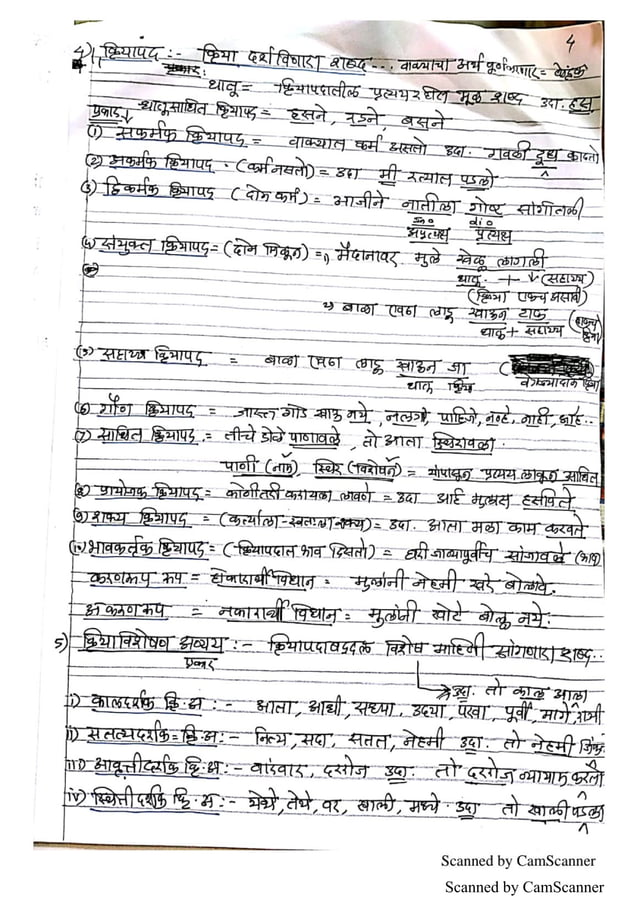 4
4) क्रियापद :- क्रिया दर्शविणारा शब्द... वाक्याचा अर्थ पूर्ण करणारा =
प्रकार:
धातू = क्रियापदातील प्रत्ययरहित मूळ शब्द उदा. हस
प्रकार धातूसाधित क्रियापद = हसने, रडने, बसने
(1) सकर्मक क्रियापद = वाक्यात कर्म असतो उदा. गवळी दूध काढतो
(2) अकर्मक क्रियापद - (कर्म नसतो) = उदा मी रस्त्यात पडलो
(3) द्विकर्मक क्रियापद (दोन कर्म) = आजीने नातीला गोष्ट सांगितली
अप्रत्यक्ष प्रत्यक्ष
संयुक्त क्रियापद = (दोन मिळून) = मैदानावर मुले खेळू लागली
धातू - + ↓ (सहाय्य)
(क्रिया एकच असावी)
बाळा एवढा लाडू खाऊन टाक
धातू + सहाय्य
सहाय्य क्रियापद = बाळा एवढा लाडू खाऊन जा
धातू क्रिया
(6) गौण क्रियापद = जास्त गोड खाऊ नये, नलगे, पाहिजे, नव्हे, नाही, आहे..
(7) साधित क्रियापद = तीचे डोळे पाणावले, तो आता स्थिरावला.
पाणी (नाम), स्थिर (विशेषन) = यांपासून प्रत्यय लावून साधित
प्रायोजक क्रियापद = कोणीतरी करायला लावणे = उदा आई मुलास हसविते
शक्य क्रियापद = (कर्त्याला-स्वतःला शक्य) = उदा. आता मला काम करवते
भावकर्तृक क्रियापद = (-क्रियापदात भाव दिसतो) = घरी जाण्यापूर्वीच सांजावले (भाव)
करणरूप रूप = होकारार्थी विधान = मुलांनी नेहमी खरे बोलावे.
अकरणरूप = नकारार्थी विधान = मुलांनी खोटे बोलू नये.
5) क्रियाविशेषण अव्यय :- क्रियापदाबद्दल विशेष माहिती सांगणारा शब्द..
प्रकार
उदा. तो काल आला
i) कालदर्शक क्रि.अ :- आता, आधी, सध्या, उद्या, परवा, पूर्वी, मागे, रात्री
ii) सातत्यदर्शक क्रि.अ :- नित्य, सदा, सतत, नेहमी उदा. तो नेहमी
iii) आवृत्तीदर्शक क्रि.अ :- वारंवार, दररोज उदा. तो दररोज व्यायाम करतो
iv) स्थितीदर्शक क्रि.अ :- येथे, तेथे, वर, खाली, मध्ये उदा तो खाली पडला
Scanned by CamScanner
Scanned by CamScanner